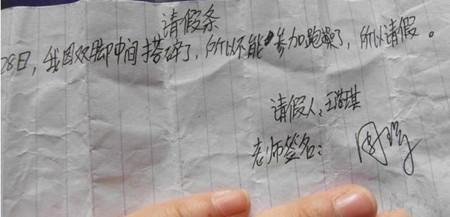 请假条
28日，我因双脚中间搭碎了，所以不能参加跑操了，所以请假。
请假人：王
老师签名：周